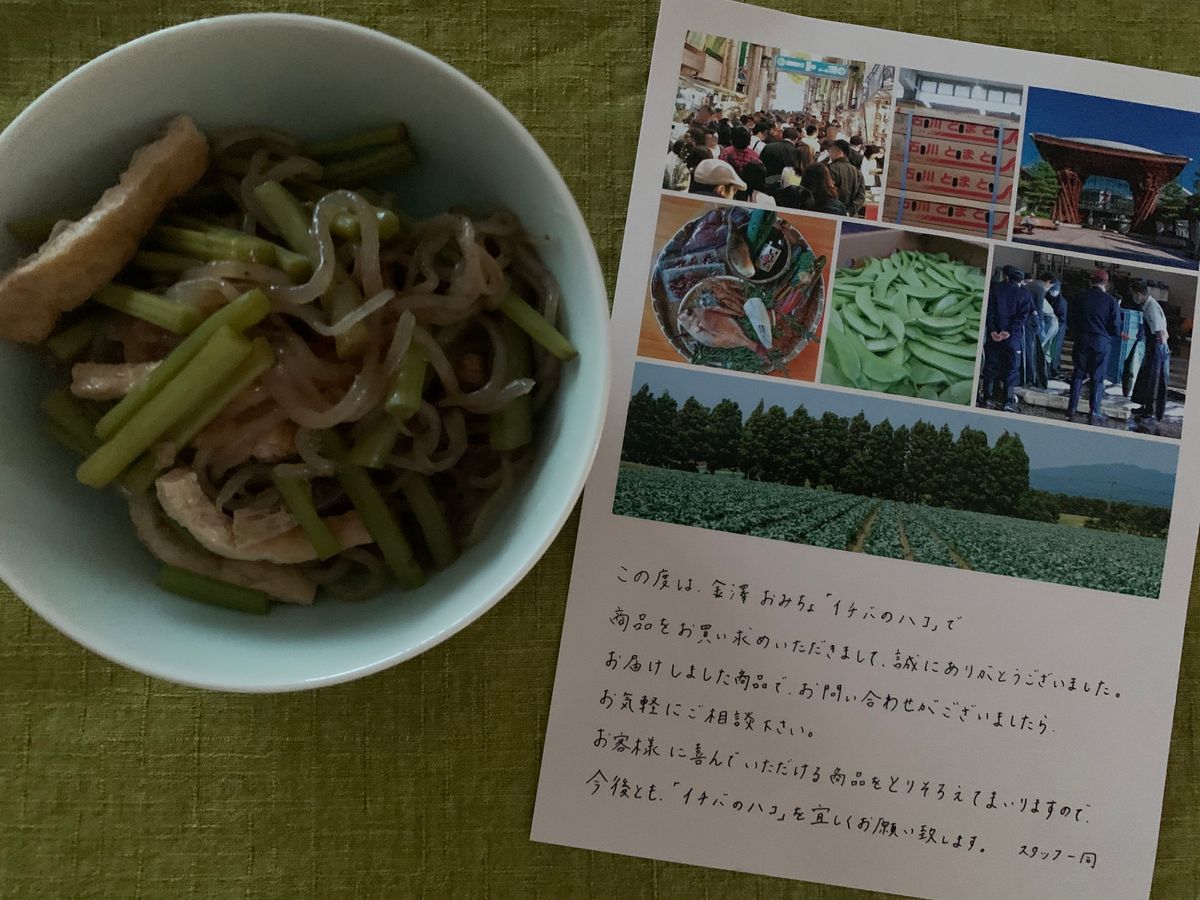 石川とまと
石川とまと
石川とまと
石川とまと
この度は、金澤 おみちょ「イチバのハコ」で
商品をお買い求めいただきまして、誠にありがとうございました。
お届けしました商品で、お問い合わせがございましたら、
お気軽にご相談下さい。
お客様に喜んでいただける商品をとりそろえてまいりますので、
今後とも、「イチバのハコ」を宜しくお願い致します。 スタッフ一同